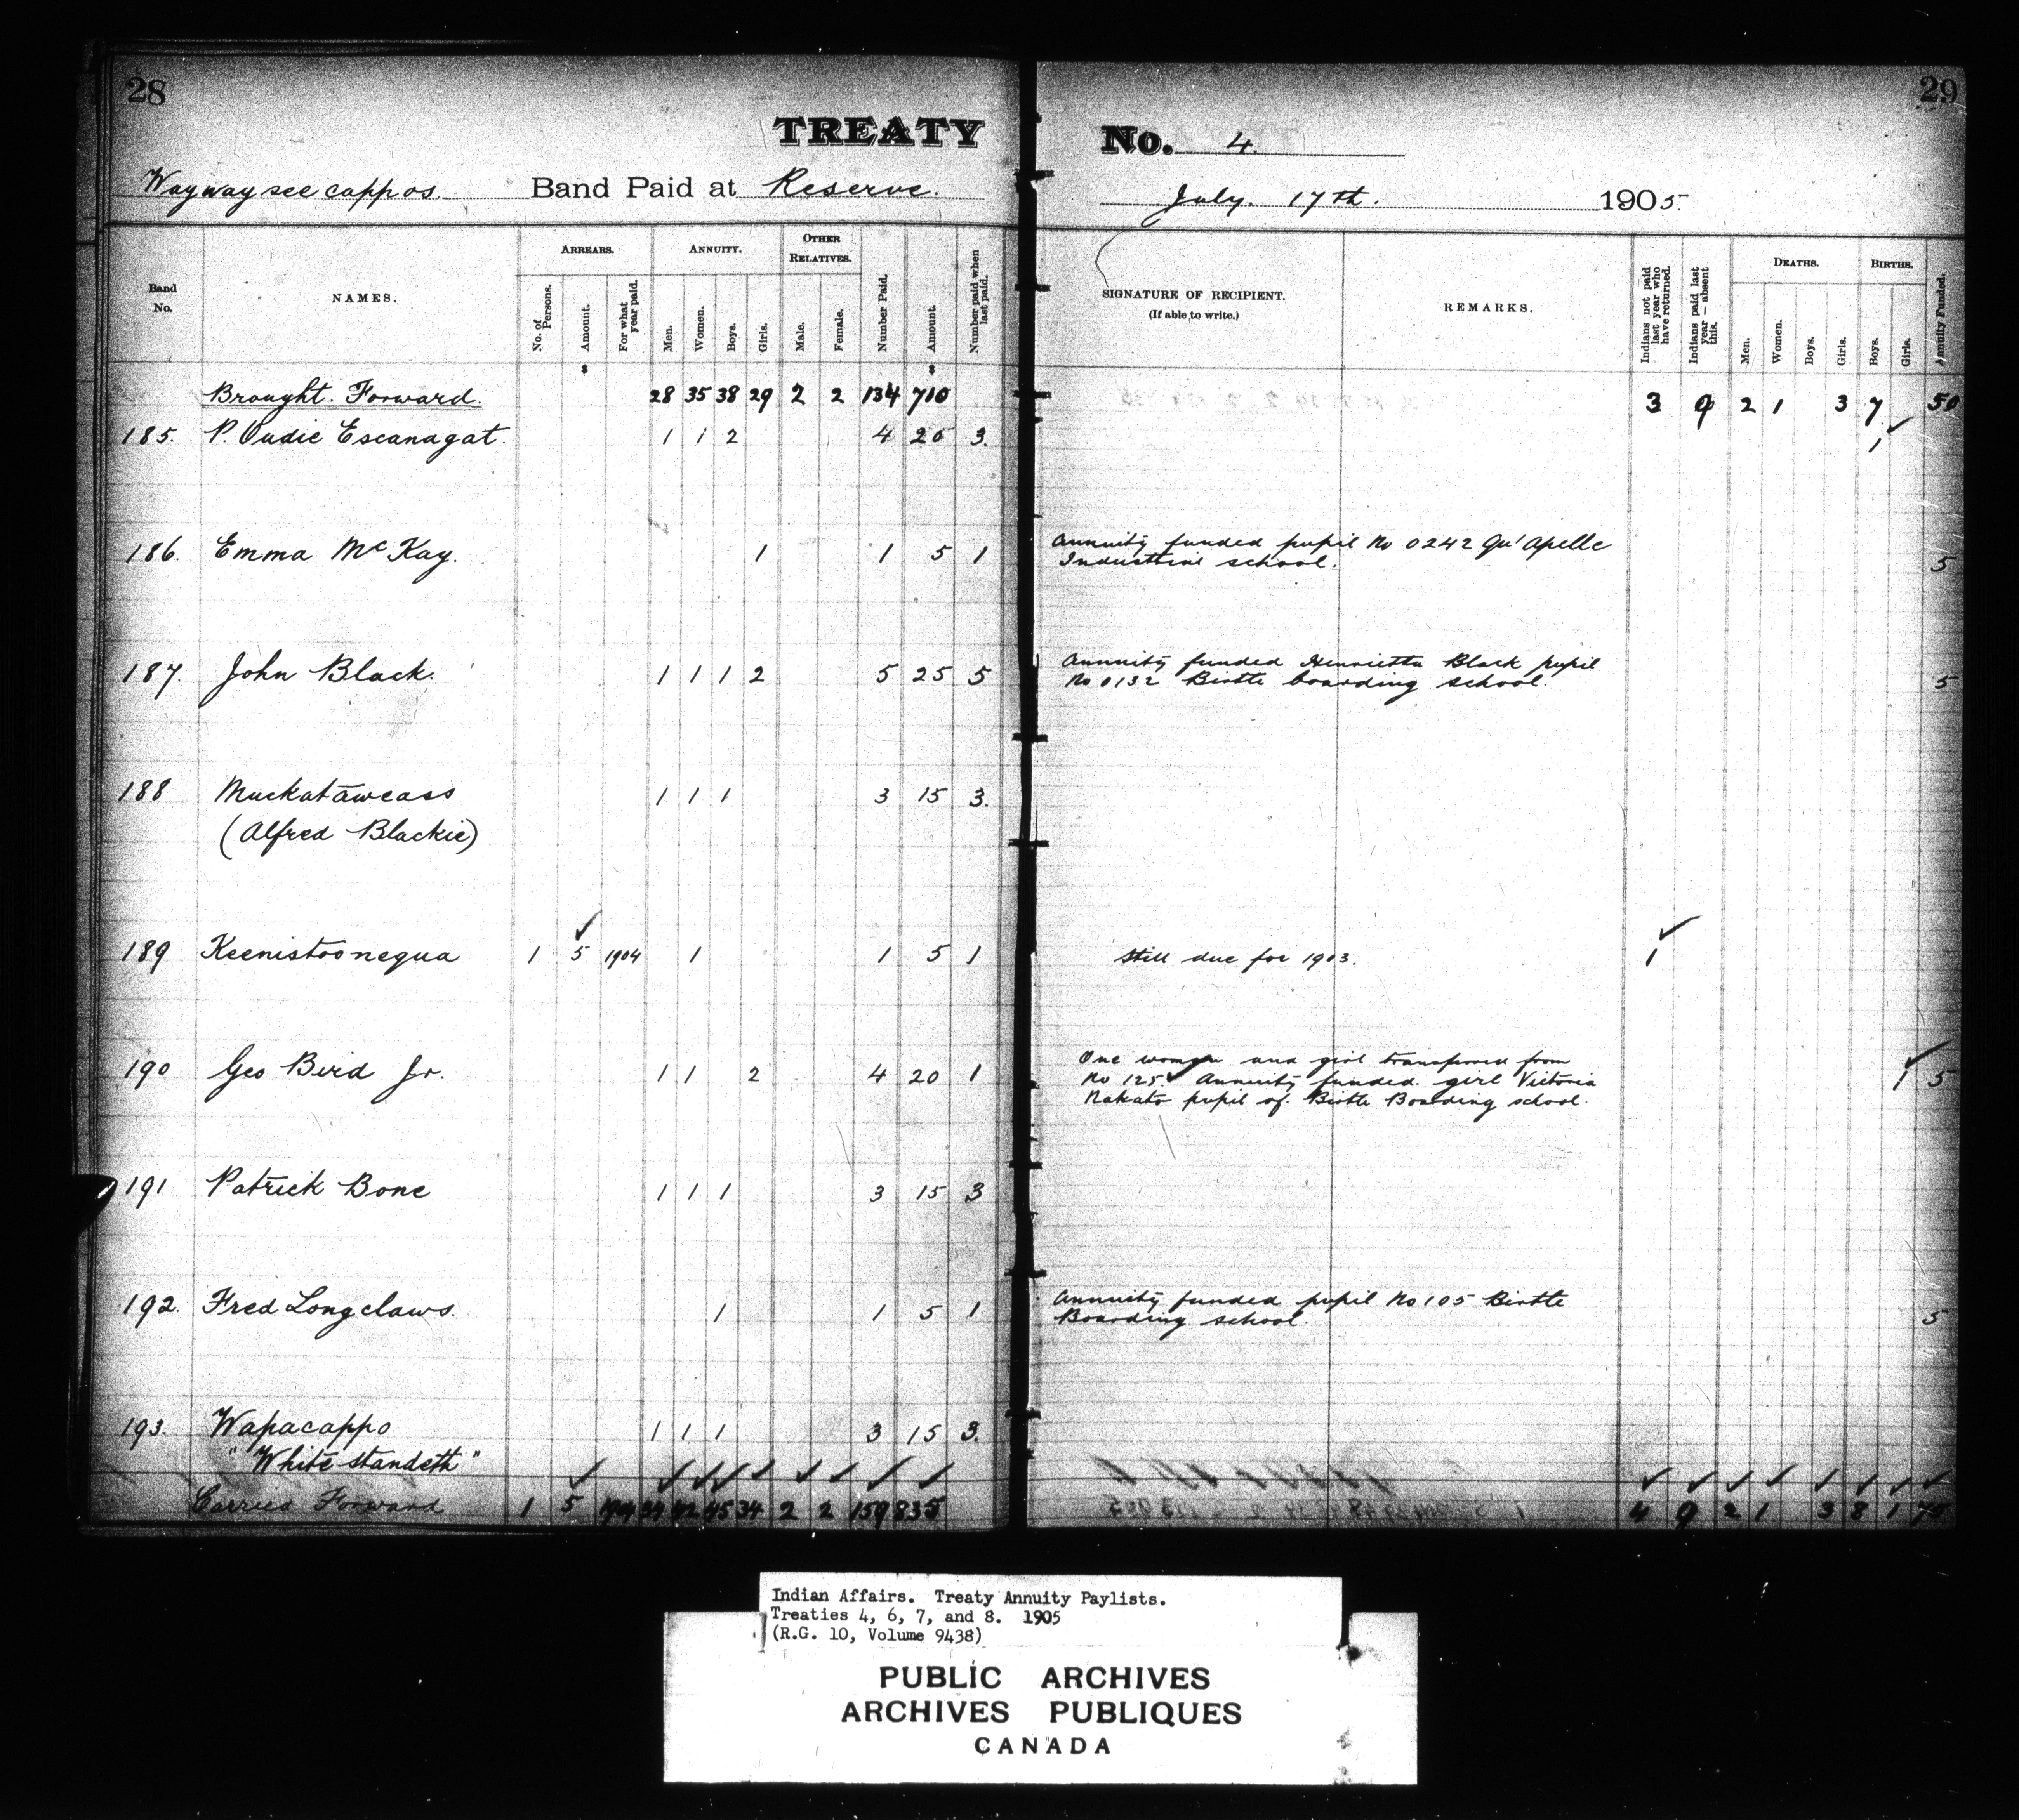 28
TREATY
Waywayseecappos Band Paid at Reserve.
Band No.
NAMES.
ARREARS.
No. of Persons.
Amount.
For what year paid.
ANNUITY.
Men.
Women.
Boys.
Girls.
OTHER RELATIVES.
Male.
Female.
Number Paid.
Amount.
Number paid when last paid.
Brought Forward. 28 35 38 29 2 2 134 710
185. P. Oudie Escanagat. 1 1 2 4 20 3.
186. Emma McKay. 1 1 5 1
187. John Black. 1 1 1 2 5 25 5
188 Muckataweass 1 1 1 3 15 3.
(Alfred Blackie)
189 Keenistoonequa 1 5 1904 1 1 5 1
190 Geo Bird Jr. 1 1 2 4 20 1
191 Patrick Bone 1 1 1 3 15 3
192. Fred Longclaws. 1 1 5 1
193. Wapacappo 1 1 1 3 15 3.
"White standeth"
Carried Forward 1 5 34 2 2 159 835
29
No. 4.
July. 17th. 1905
SIGNATURE OF RECIPIENT.
(If able to write.)
REMARKS.
Indians not paid last year who have returned.
Indians paid last year — absent this.
DEATHS.
Men.
Women.
Boys.
Girls.
BIRTHS.
Boys.
Girls.
Annuity Funded.
3 9 2 1 3 7 50
1
Annuity funded pupil No 0242 Qu'Apelle
Industrial school. 5
Annuity funded Henrietta Black pupil
No 0132 Birtle boarding school. 5
Still due for 1903. 1
One woman and girl transferred from
No 125. Annuity funded girl Victoria 1 5
Nakato pupil of Birtle Boarding school.
Annuity funded pupil No 105 Birtle
Boarding school. 5
4 9 2 1 3 8 1 75
Indian Affairs. Treaty Annuity Paylists.
Treaties 4, 6, 7, and 8. 1905
(R.G. 10, Volume 9438)
PUBLIC ARCHIVES
ARCHIVES PUBLIQUES
CANADA